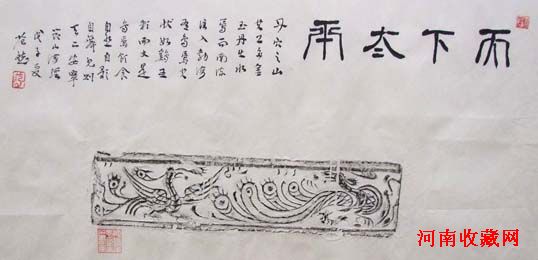 天下太平
丹穴之山
其上多金
玉丹水
焉而南流
注入勃海
有鳥焉其
狀如五
彩而文是
鳥飲食
自然自歌
自舞見則
天下安寧
山海經
戊子夏
河南收藏网